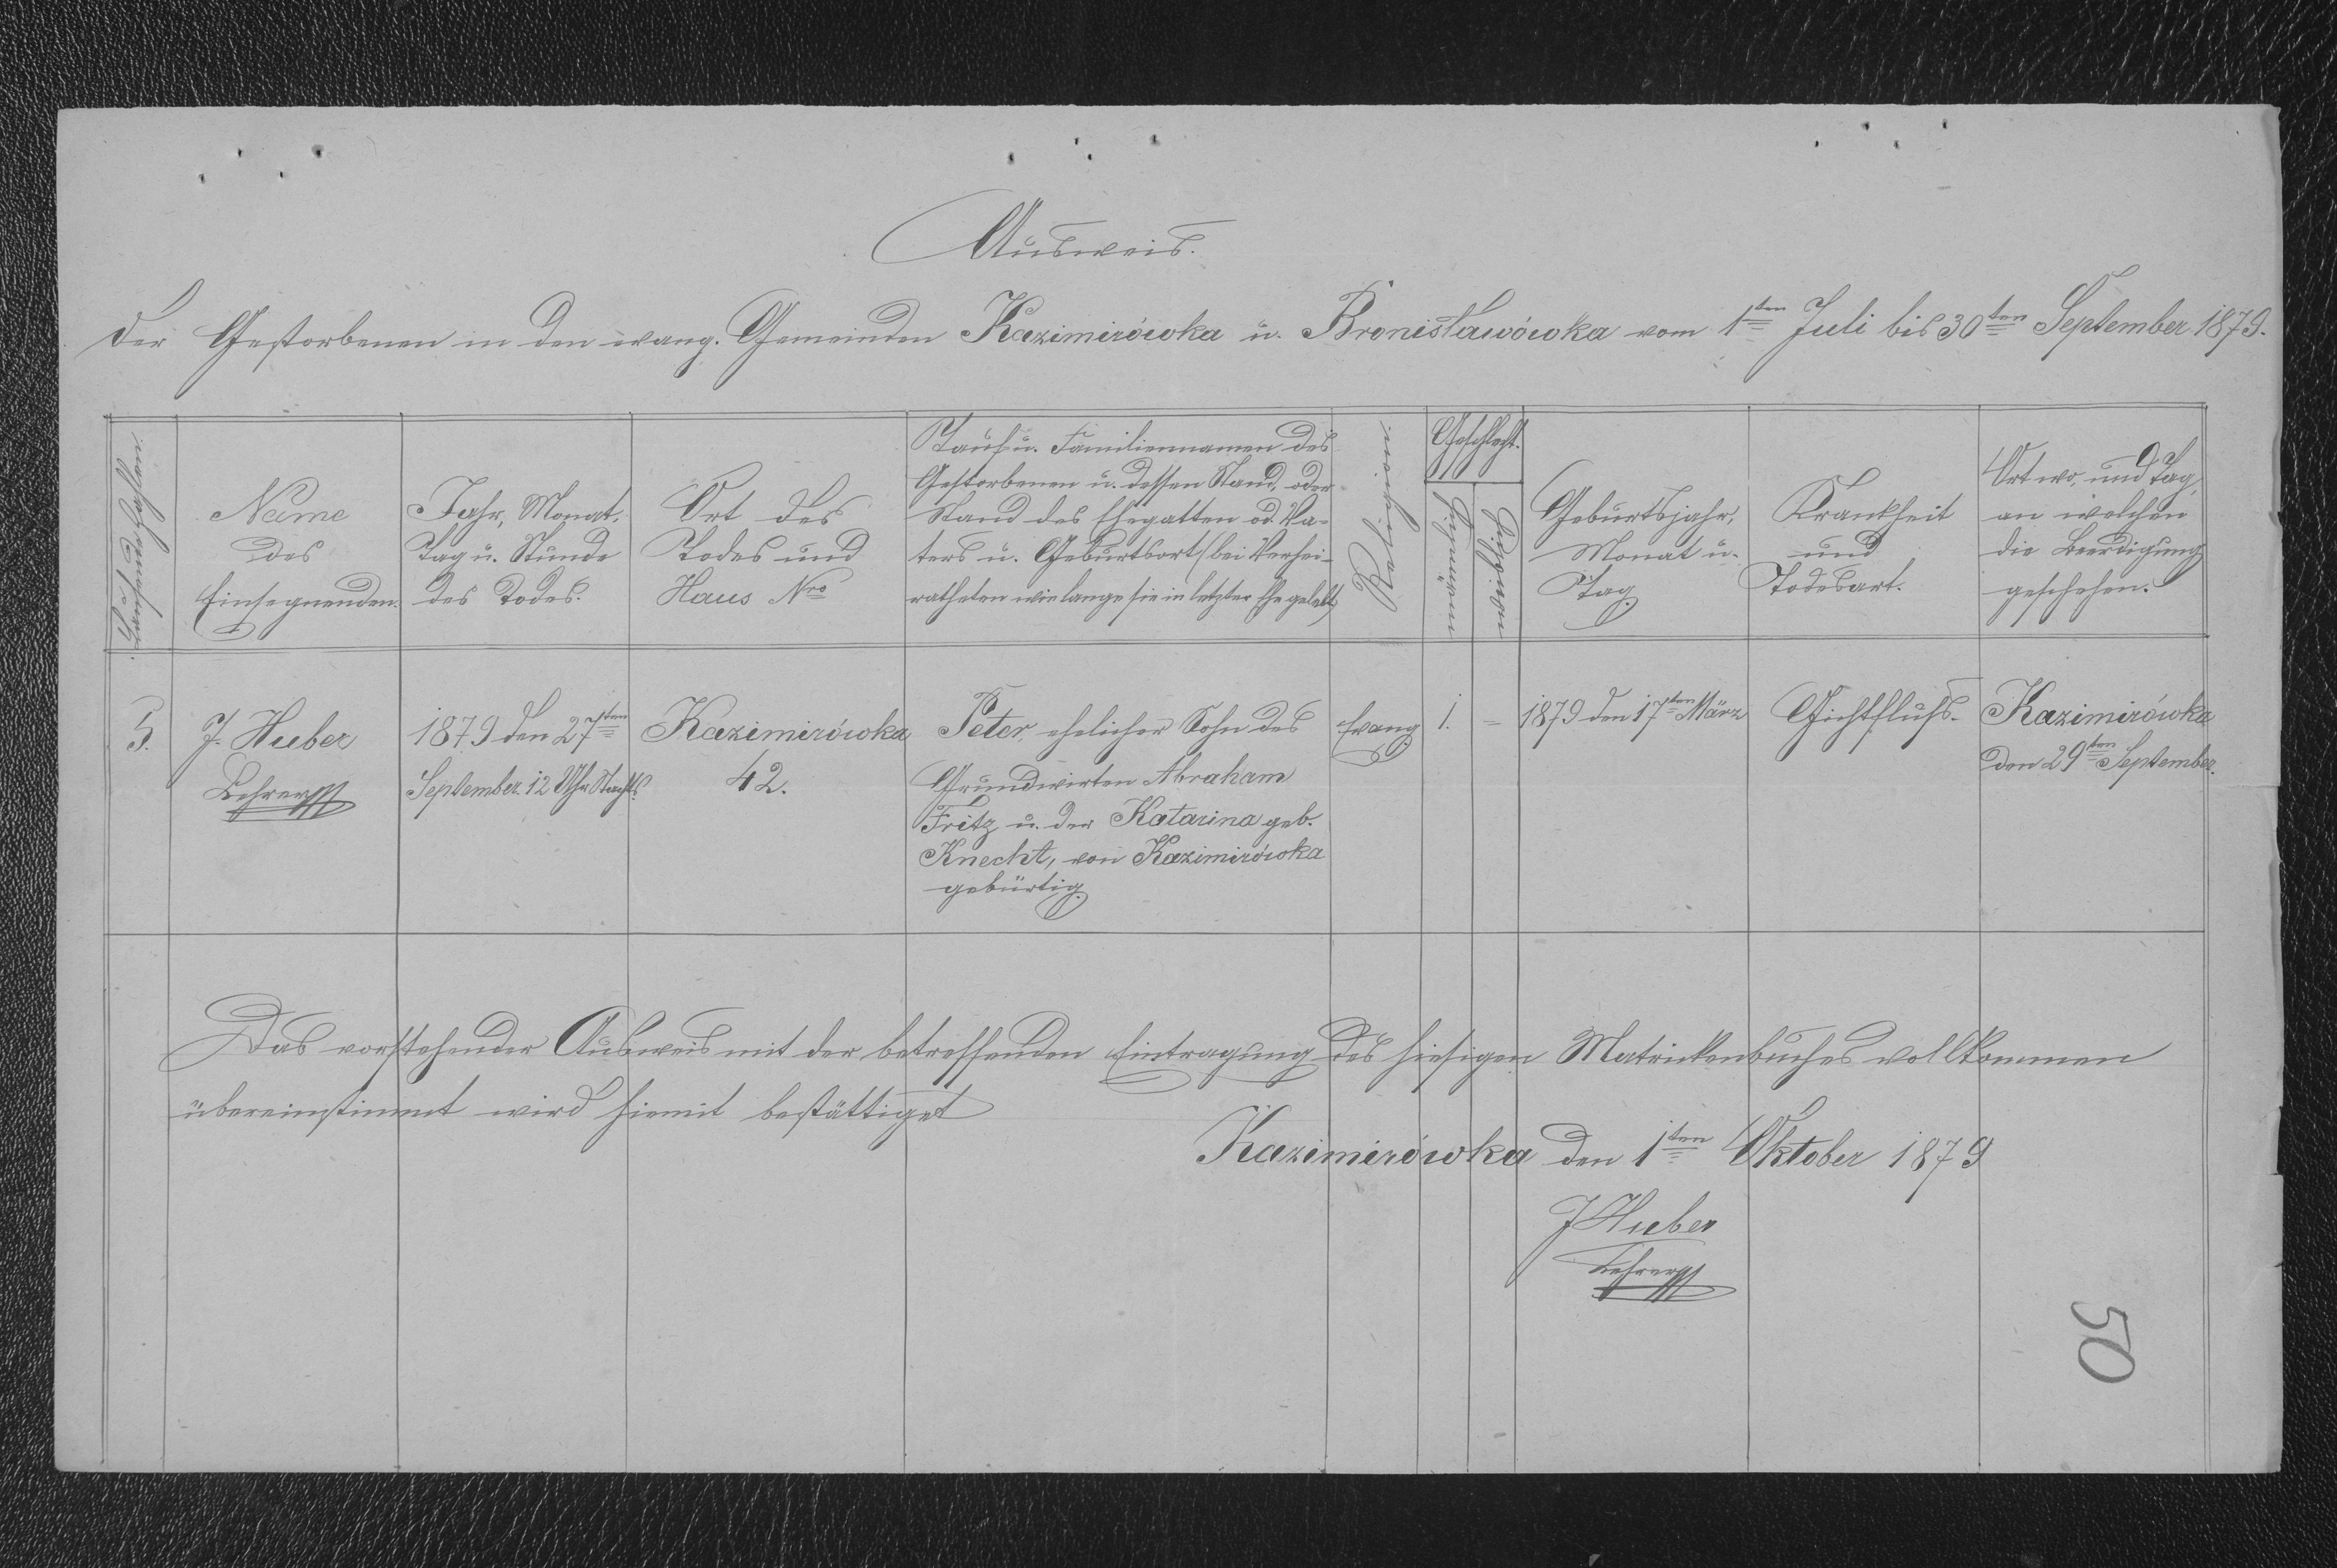 Ausweis.
der Gestorbenen in den evang. Gemeinden Kazimirówka u. Bronisławówka vom 1ten Juli bis 30ten September 1879.
Name
des
Einsegnenden.
Jahr, Monat,
Tag u. Stunde
des Todes.
Ort des
Todes und
Haus Nro
Tauf u. Familiennamen des
Gestorbenen u. dessen Stand, oder
Stand des Ehegatten od. Va-
ters u. Geburtsort (bei Verhei-
ratheten wie lange sie in letzter Ehe gelebt)
Religion
Geschlecht.
Geburtsjahr,
Monat u.
Tag
Krankheit
und
Todesart.
Ort wo, und Tag,
an welchen
die Beerdigung
geschehen.
5.
J. Huber
Lehrer
1879 den 27ten
September 12 Uhr Nachts
Kazimirówka
42.
Peter, ehelicher Sohn des
Grundwirten Abraham
Fritz u. der Katarina geb.
Knecht, von Kazimirówka
gebürtig
Evang
1.
=
1879 den 17ten März
Gichtfluß.
Kazimirówka
den 29ten September.
Das vorstehender Ausweis mit der betreffenden Eintragung des hiesigen Matrickenbuches vollkommen
übereinstimmt wird hiemit bestättiget
Kazimirówka den 1ten Oktober 1879
J Huber
Lehrer
50